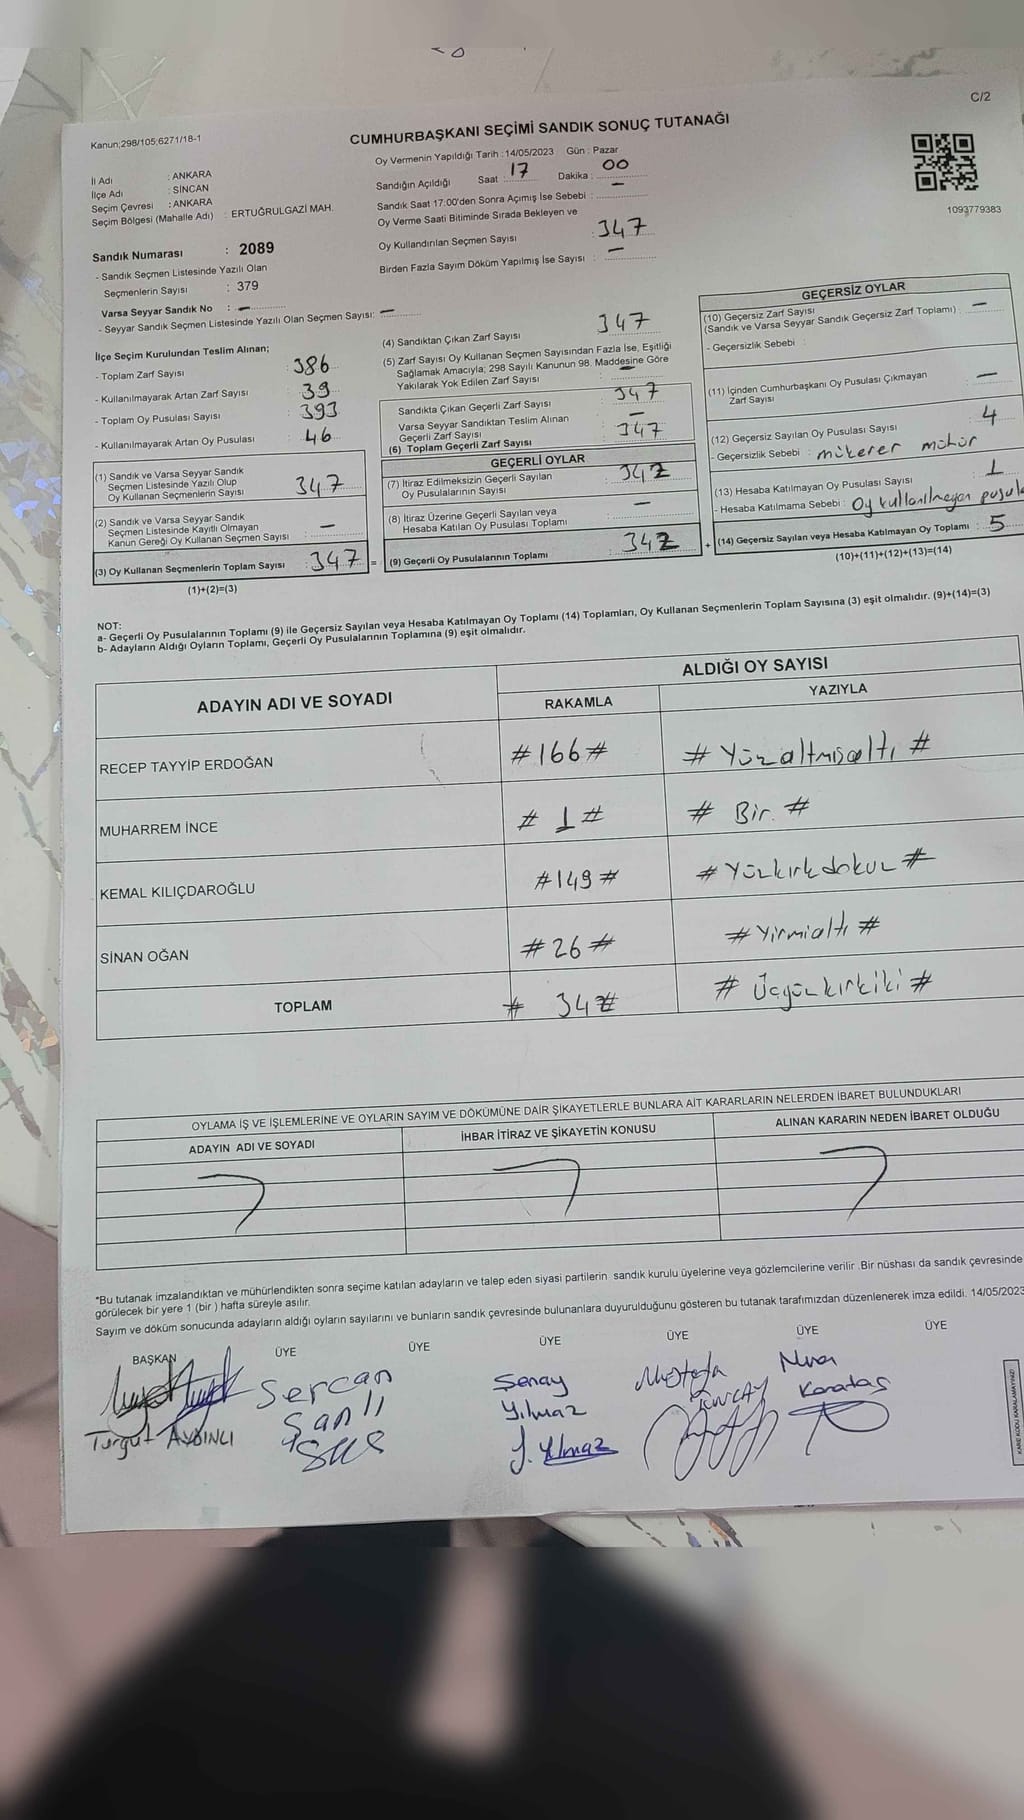 C/2
Kanun;298/105;6271/18-1
CUMHURBAŞKANI SEÇİMİ SANDIK SONUÇ TUTANAĞI
Oy Vermenin Yapıldığı Tarih : 14/05/2023 Gün : Pazar
İl Adı : ANKARA
İlçe Adı : SİNCAN
Seçim Çevresi : ANKARA
Seçim Bölgesi (Mahalle Adı) : ERTUĞRULGAZİ MAH.
Sandığın Açıldığı Saat 17 Dakika : 00
Sandık Saat 17:00'den Sonra Açımış İse Sebebi : —
Oy Verme Saati Bitiminde Sırada Bekleyen ve
Oy Kullandırılan Seçmen Sayısı : 347
Birden Fazla Sayım Döküm Yapılmış İse Sayısı : —
1093779383
Sandık Numarası : 2089
- Sandık Seçmen Listesinde Yazılı Olan
Seçmenlerin Sayısı : 379
Varsa Seyyar Sandık No : —
- Seyyar Sandık Seçmen Listesinde Yazılı Olan Seçmen Sayısı: —
İlçe Seçim Kurulundan Teslim Alınan;
- Toplam Zarf Sayısı : 386
- Kullanılmayarak Artan Zarf Sayısı : 39
- Toplam Oy Pusulası Sayısı : 393
- Kullanılmayarak Artan Oy Pusulası : 46
(1) Sandık ve Varsa Seyyar Sandık
Seçmen Listesinde Yazılı Olup
Oy Kullanan Seçmenlerin Sayısı : 347
(2) Sandık ve Varsa Seyyar Sandık
Seçmen Listesinde Kayıtlı Olmayan
Kanun Gereği Oy Kullanan Seçmen Sayısı : —
(3) Oy Kullanan Seçmenlerin Toplam Sayısı : 347
(1)+(2)=(3)
(4) Sandıktan Çıkan Zarf Sayısı : 347
(5) Zarf Sayısı Oy Kullanan Seçmen Sayısından Fazla İse, Eşitliği
Sağlamak Amacıyla; 298 Sayılı Kanunun 98. Maddesine Göre
Yakılarak Yok Edilen Zarf Sayısı : —
Sandıkta Çıkan Geçerli Zarf Sayısı : 347
Varsa Seyyar Sandıktan Teslim Alınan
Geçerli Zarf Sayısı : —
(6) Toplam Geçerli Zarf Sayısı : 347
GEÇERLİ OYLAR
(7) İtiraz Edilmeksizin Geçerli Sayılan
Oy Pusulalarının Sayısı : 342
(8) İtiraz Üzerine Geçerli Sayılan veya
Hesaba Katılan Oy Pusulası Toplamı : —
= (9) Geçerli Oy Pusulalarının Toplamı : 342
GEÇERSİZ OYLAR
(10) Geçersiz Zarf Sayısı
(Sandık ve Varsa Seyyar Sandık Geçersiz Zarf Toplamı) : —
- Geçersizlik Sebebi :
(11) İçinden Cumhurbaşkanı Oy Pusulası Çıkmayan
Zarf Sayısı : —
(12) Geçersiz Sayılan Oy Pusulası Sayısı : 4
- Geçersizlik Sebebi : mükerer mühür
(13) Hesaba Katılmayan Oy Pusulası Sayısı : 1
- Hesaba Katılmama Sebebi : Oy kullanılmayan pusula
+ (14) Geçersiz Sayılan veya Hesaba Katılmayan Oy Toplamı : 5
(10)+(11)+(12)+(13)=(14)
NOT:
a- Geçerli Oy Pusulalarının Toplamı (9) ile Geçersiz Sayılan veya Hesaba Katılmayan Oy Toplamı (14) Toplamları, Oy Kullanan Seçmenlerin Toplam Sayısına (3) eşit olmalıdır. (9)+(14)=(3)
b- Adayların Aldığı Oyların Toplamı, Geçerli Oy Pusulalarının Toplamına (9) eşit olmalıdır.
ADAYIN ADI VE SOYADI ALDIĞI OY SAYISI
RAKAMLA YAZIYLA
RECEP TAYYİP ERDOĞAN #166# # Yüzaltmışaltı #
MUHARREM İNCE # 1 # # Bir. #
KEMAL KILIÇDAROĞLU #149# # Yüzkırkdokuz #
SİNAN OĞAN #26# # Yirmialtı #
TOPLAM # 342# # Üçyüzkırkiki #
OYLAMA İŞ VE İŞLEMLERİNE VE OYLARIN SAYIM VE DÖKÜMÜNE DAİR ŞİKAYETLERLE BUNLARA AİT KARARLARIN NELERDEN İBARET BULUNDUKLARI
ADAYIN ADI VE SOYADI İHBAR İTİRAZ VE ŞİKAYETİN KONUSU ALINAN KARARIN NEDEN İBARET OLDUĞU
*Bu tutanak imzalandıktan ve mühürlendikten sonra seçime katılan adayların ve talep eden siyasi partilerin sandık kurulu üyelerine veya gözlemcilerine verilir .Bir nüshası da sandık çevresinde
görülecek bir yere 1 (bir ) hafta süreyle asılır.
Sayım ve döküm sonucunda adayların aldığı oyların sayılarını ve bunların sandık çevresinde bulunanlara duyurulduğunu gösteren bu tutanak tarafımızdan düzenlenerek imza edildi. 14/05/2023
BAŞKAN ÜYE ÜYE ÜYE ÜYE ÜYE ÜYE
Turgut AYDINLI
Sercan
Şanlı
Şenay
Yılmaz
Ş. Yılmaz
Mustafa
TUNCAY
Nura
Karataş
KARE KODU KARALAMAYINIZ!